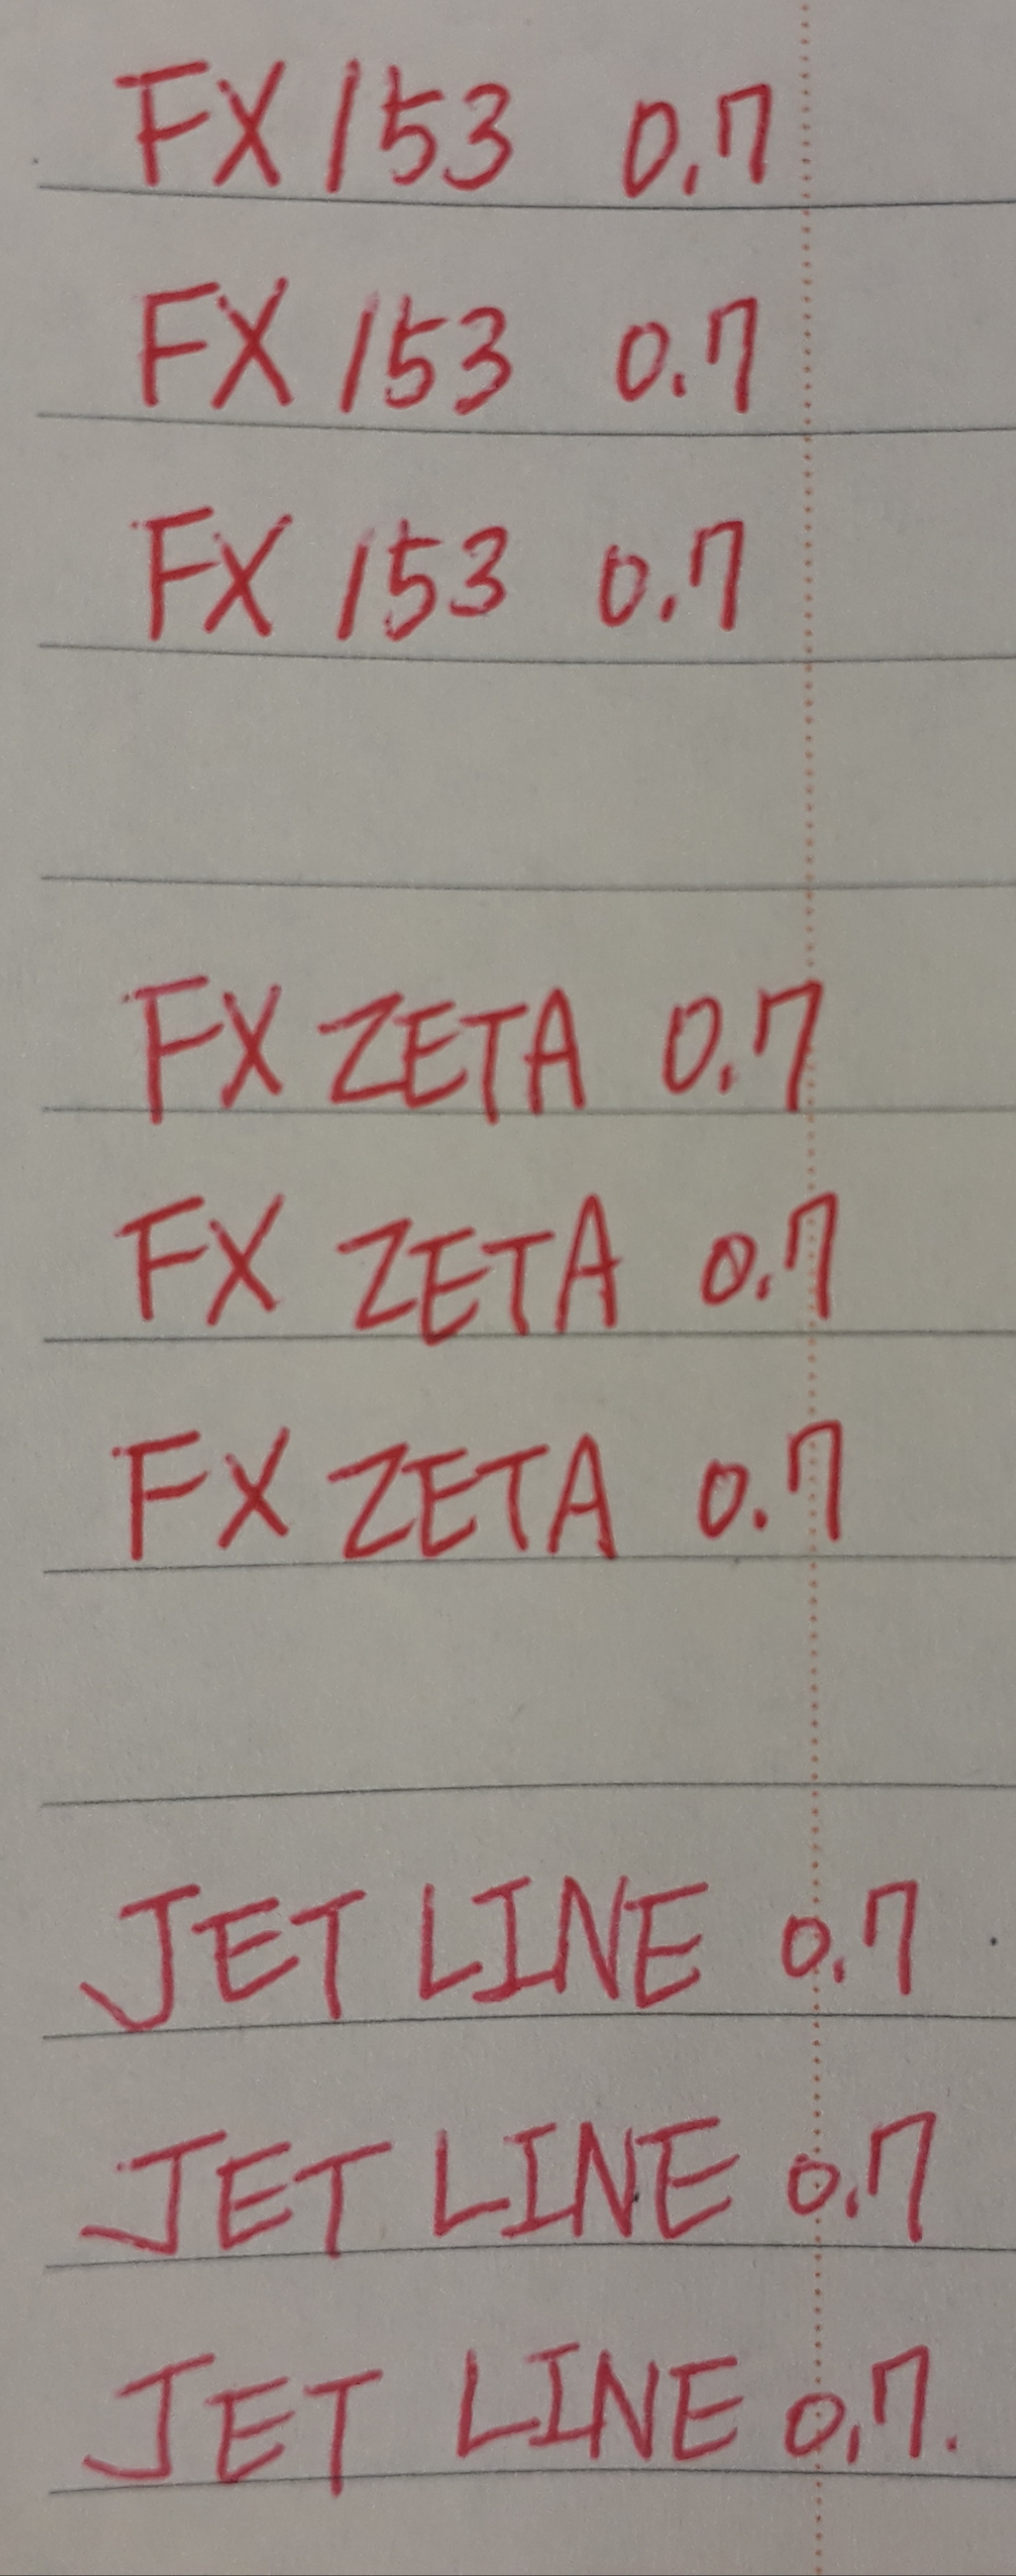 FX 153 0.7
FX 153 0.7
FX 153 0.7
FX ZETA 0.7
FX ZETA 0.7
FX ZETA 0.7
JET LINE 0.7
JET LINE 0.7
JET LINE 0.7.